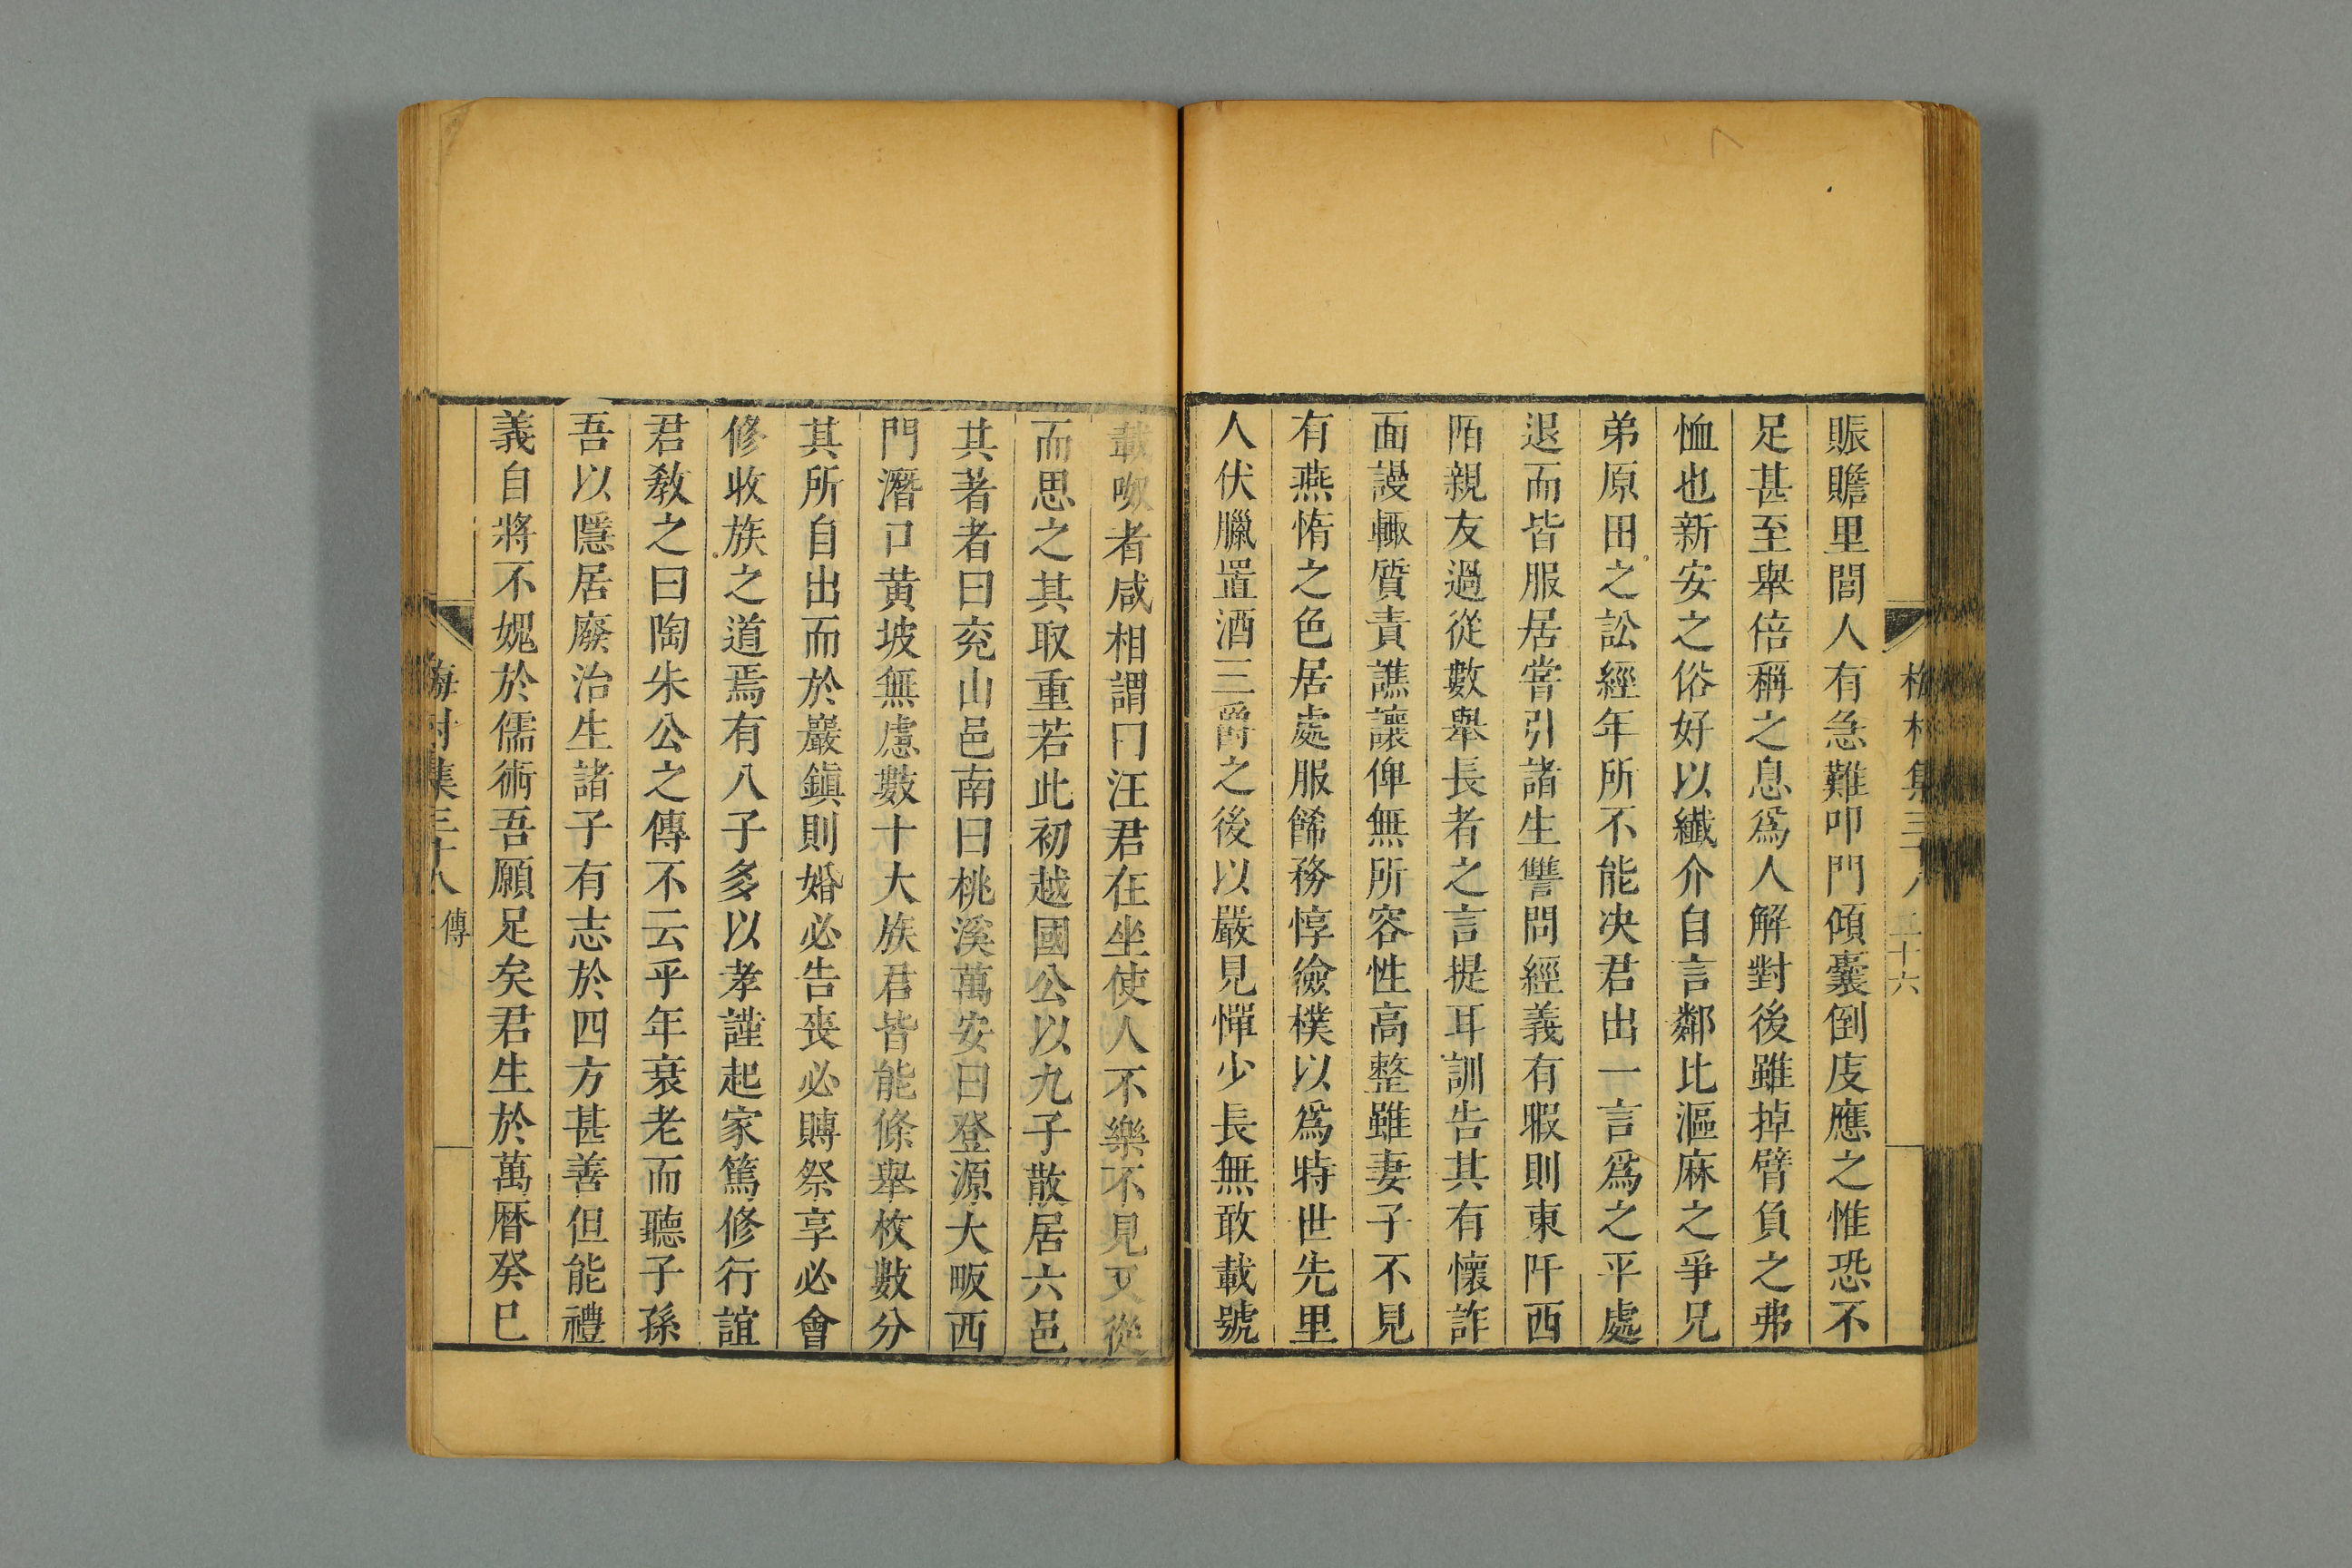 梅村集三十八 二十六
賑贍里閭人有急難叩門傾囊倒庋應之惟恐不
足甚至舉倍稱之息爲人解對後雖掉臂負之弗
恤也新安之俗好以纖介自言鄰比漚麻之爭兄
弟原田之訟經年所不能决君出一言爲之平處
退而皆服居嘗引諸生讐問經義有暇則東阡西
陌親友過從數舉長者之言提耳訓告其有懷詐
面謾輙質責譙讓俾無所容性高整雖妻子不見
有燕惰之色居處服餙務惇儉樸以爲時世先里
人伏臘置酒三爵之後以嚴見憚少長無敢載號
載呶者咸相謂曰汪君在坐使人不樂不見又從
而思之其取重若此初越國公以九子散居六邑
其著者曰兖山邑南曰桃溪萬安曰登源大畈西
門潛口黄坡無慮數十大族君皆能條舉枚數分
其所自出而於巖鎮則婚必告喪必賻祭享必會
修收族之道焉有八子多以孝謹起家篤修行誼
君敎之曰陶朱公之傳不云乎年衰老而聽子孫
吾以隱居廢治生諸子有志於四方甚善但能禮
義自將不媿於儒術吾願足矣君生於萬曆癸巳
梅村集三十八 傳